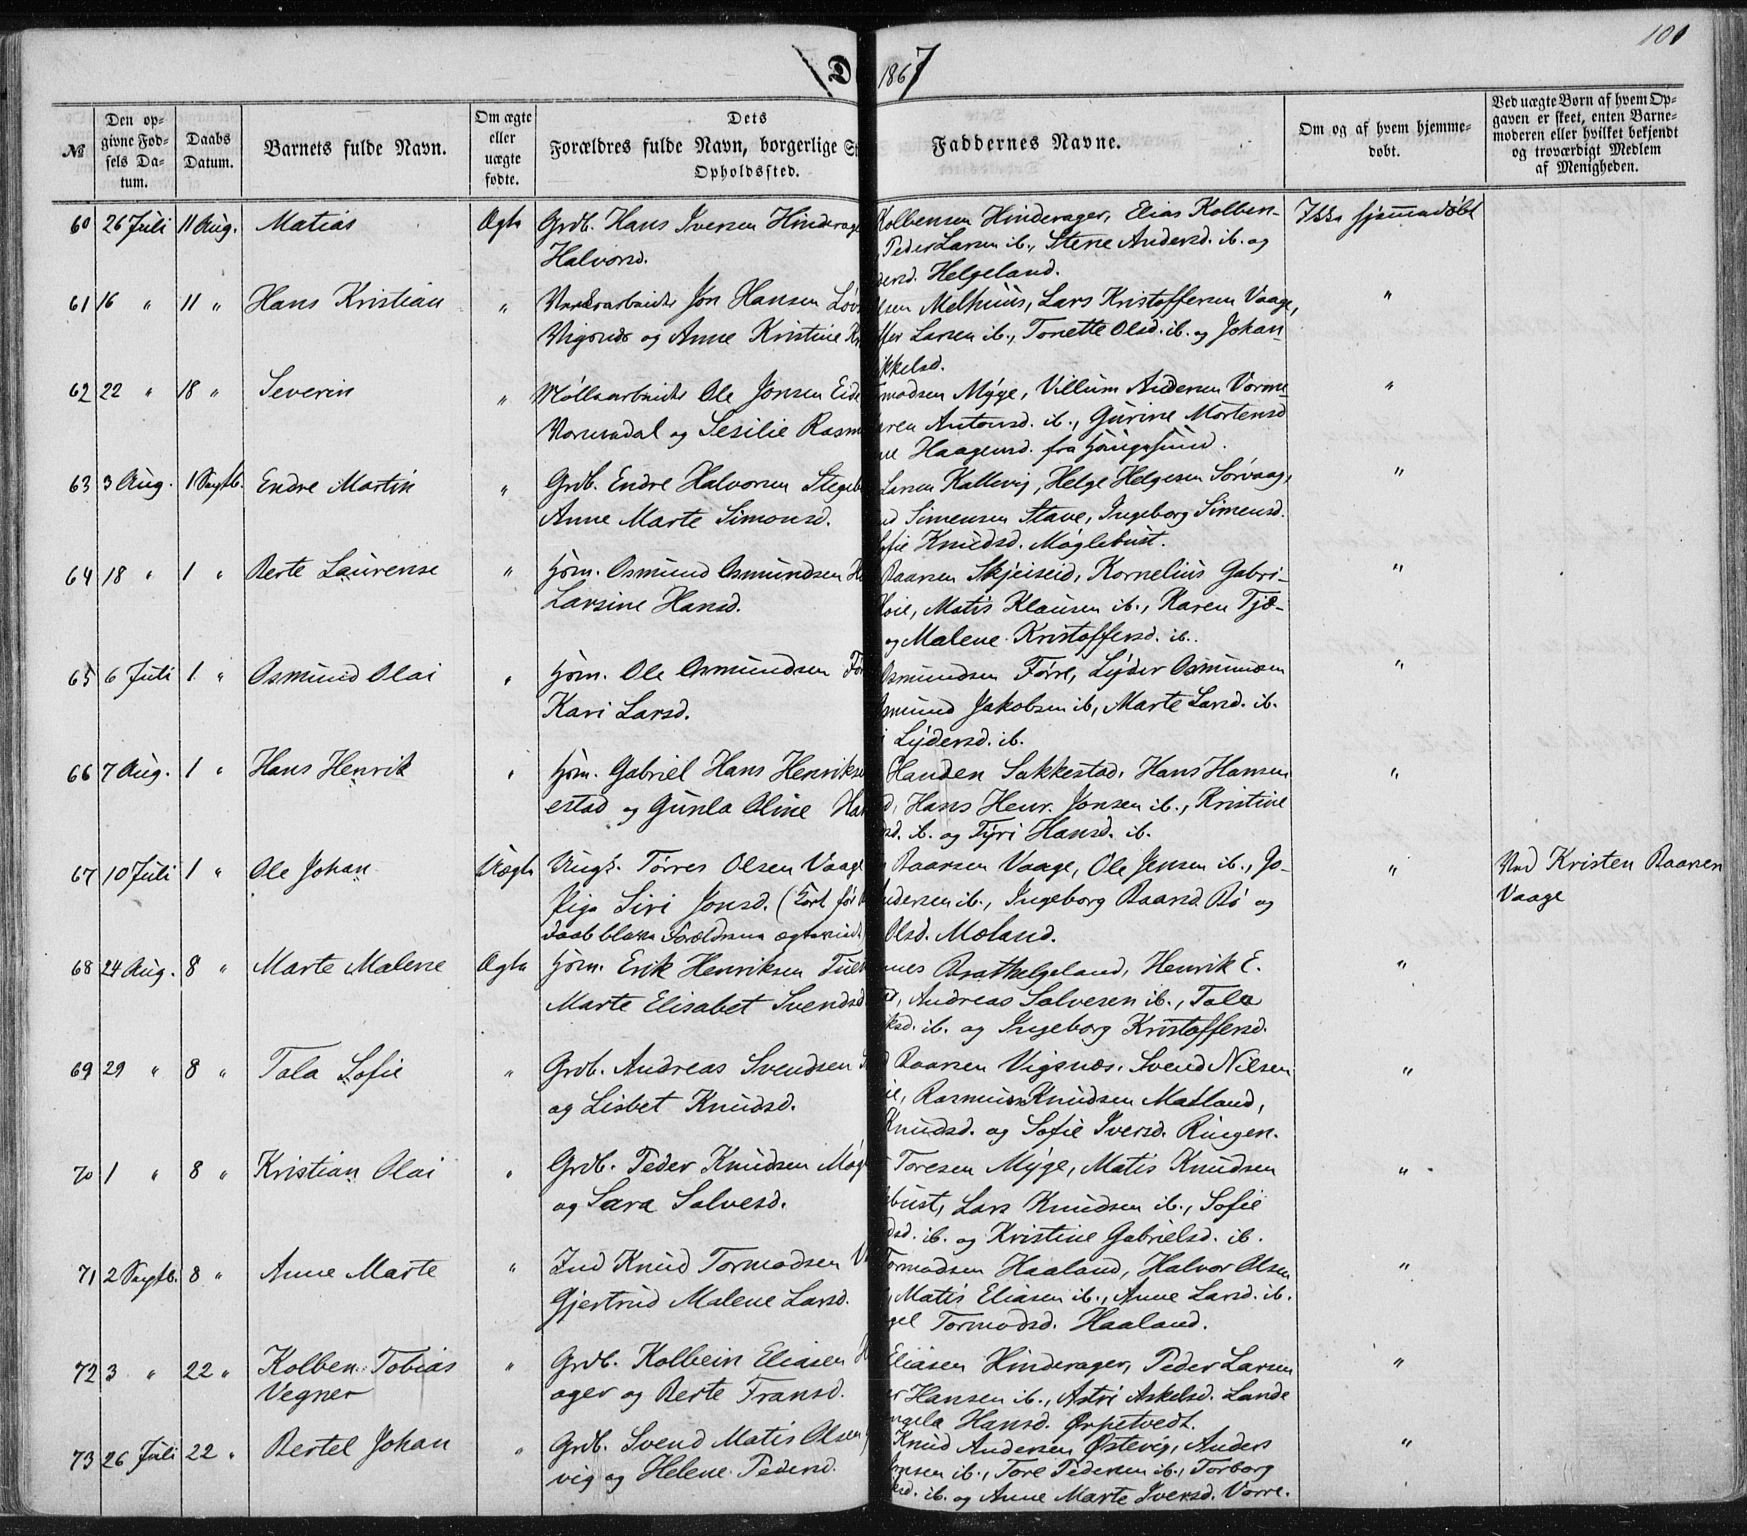 101
D 1867
№
Den op-
givne Fød-
sels Da-
tum.
Daabs
Datum.
Barnets fulde Navn.
Om ægte
eller
uægte
fødte.
Dets
Forældres fulde Navn, borgerlige
Opholdssted.
Faddernes Navne.
Om og af hvem hjemme-
døbt.
Ved uægte Børn af hvem Op-
gaven er skeet, enten Barne-
moderen eller hvilket bekjendt
og troværdigt Medlem
af Menigheden.
60 26 Juli 11 Aug. Matias Ægte Grdb. Hans Iversen
Halvorsd.
Kolbensen Hinderager, Elias Kolben-
Peder Larsen ib., Stene Andersd. ib. og
Helgeland.
Ikke hjemmedøbt
61 16 " 11 " Hans Kristian " Jon Hansen
Vigsnæs og Anne Kristine
Melhuus, Lars Kristoffersen Vaage,
Larsen ib., Tonette Olsd. ib. og Johan-
"
62 22 " 18 " Severin " Ole Jonsen
og Sesilie
Myge, Villum Andersen Vorme-
Antonsd. ib., Gurine Mortensd
Haagensd. fra Høugesund.
"
63 3 Aug. 1 Septb. Endre Martin " Grdb. Endre Halvorsen
Anne Marte Simonsd.
Larsen Kallevig, Helge Helgesen Sørvaag,
Simensen Stave, Ingeborg Simensd.
Knudsd. Møglebust.
"
64 18 " 1 " Berte Laurense " Hsm. Osmund Osmundsen
Larsine Hansd.
Baarsen Skjeiseid, Kornelius Gabri-
Matis Klausen ib., Karen Tjø-
og Malene Kristoffersd. ib.
"
65 6 Juli 1 " Osmund Olai " Hsm. Ole Osmundsen
Kari Larsd.
Osmundsen Førre, Lyder Osmundsen
Jakobsen ib, Marte Larsd. ib.
Lydersd. ib.
"
66 7 Aug. 1 " Hans Henrik " Hsm. Gabriel Hans
estad og Gunla Oline
Sakkestad, Hans Hansen
Hans Henr. Jonsen ib., Kristine
ib. og Tyri Hansd. ib.
"
67 10 Juli 1 " Ole Johan Uægte Ungk. Tørres Olsen
Pige Siri Jonsd. (Kort før
Daab bleve Forældrene
Baarsen Vaage, Ole Jensen ib., Jo-
ib., Ingeborg Baarsd. Bø og
Olsd. Moland.
"
Ved Kristen Baarsen
Vaage
68 24 Aug. 8 " Marte Malene Ægte Hsm. Erik Henriksen
Marte Elisabet Svendsd
Brathelgeland, Henrik E.
Andreas Salvesen ib., Tala
ib. og Ingeborg Kristoffersd.
"
69 29 " 8 " Tala Sofie " Grdb. Andreas Svendsen
og Lisbet Knudsd.
Baarsen Vigsnæs, Svend Nilsen
Rasmus Knudsen Matland,
Knudsd. og Sofie Iversd. Ringen.
"
70 1 " 8 " Kristian Olai " Grdb. Peder Knudsen
og Sara Salvesd.
Toresen Myge, Matis Knudsen
Lars Knudsen ib., Sofie
ib. og Kristine Gabrielsd. ib.
"
71 2 Septb. 8 " Anne Marte " Ind Knud Tormodsen
Gjertrud Malene Larsd.
Tormodsen Haaland, Halvor Olsen
Matis Eliasen ib., Anne Larsd. ib.
Tormodsd. Haaland.
"
72 3 " 22 " Kolben Tobias
Vegner " Grdb. Kolbein Eliasen
ager og Berte Fransd.
Eliasen Hinderager, Peder Larsen
Hansen ib., Astri Askelsd. Lande
Hansd. Ørpetvedt.
"
73 26 Juli 22 " Bertel Johan " Grdb. Svend Matis Olsen
vig og Helene Pedersd.
Knud Andersen Østevig, Anders
ib., Tore Pedersen ib., Torborg
ib. og Anne Marte Iversd. Vorre.
"